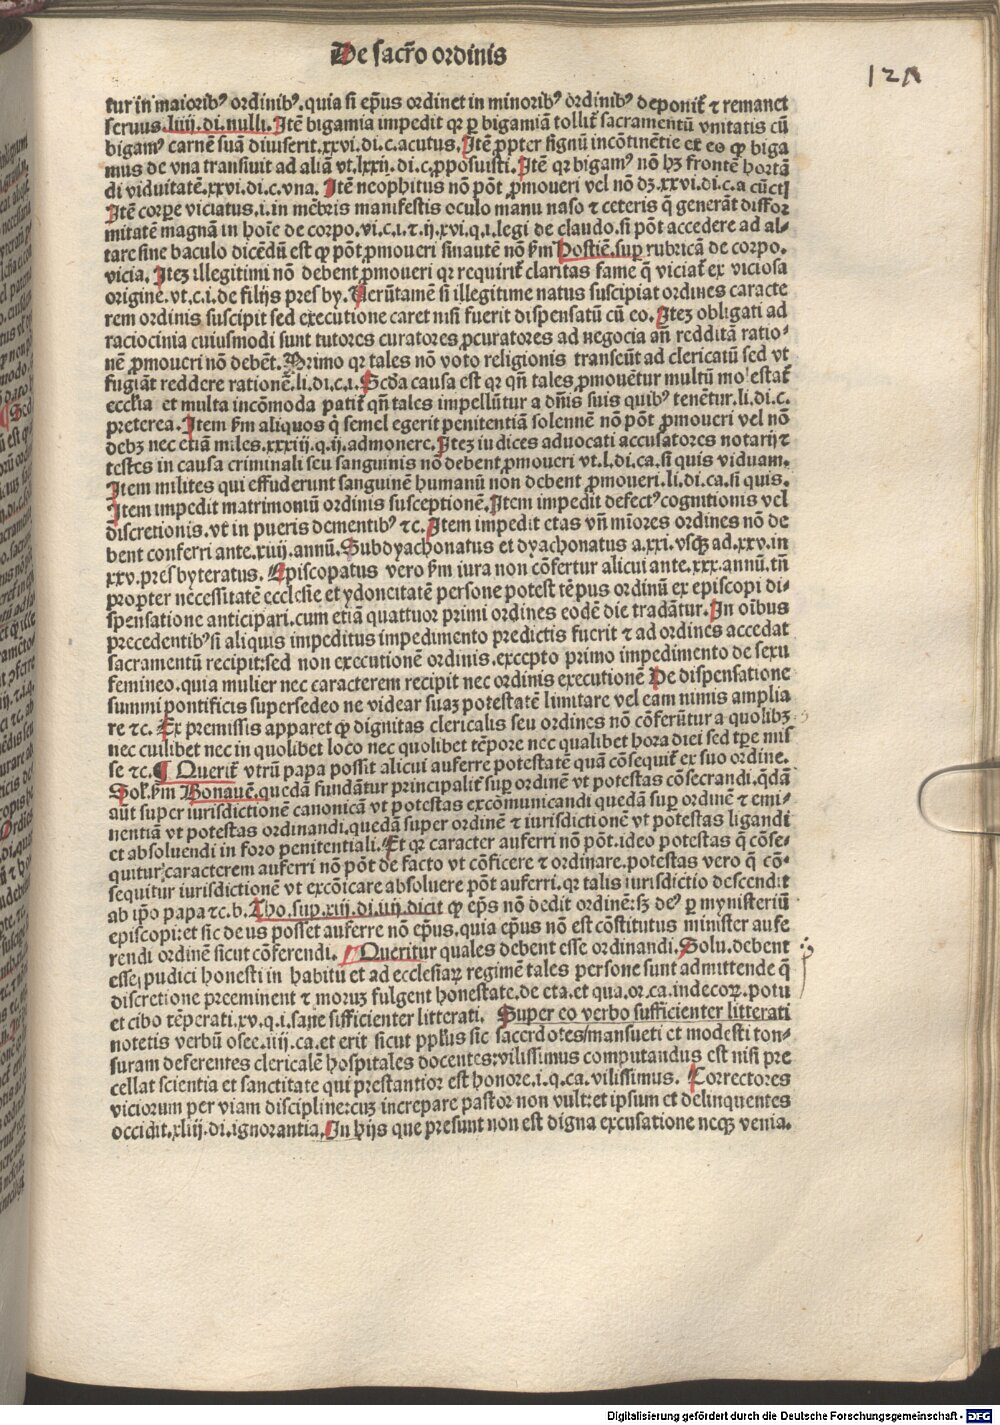 De sacr̄o ordinis
121
tur in maiorib⁹ ordinib⁹. quia si ep̄us ordinet in minorib⁹ ordinib⁹ deponit̄ ⁊ remanet
seruus. liiij. di. nulli. Itē bigamia impedit qr ꝑ bigamiā tollit̄ sacramentū vnitatis cū
bigam⁹ carnē suā diuiserit. xxvi. di. c. acutus. Itē ꝓpter signū incōtinētie ex eo ꝙ biga
mus de vna transiuit ad aliā vt. lxxij. di. c. ꝓposuisti. Itē qr bigam⁹ nō hꝫ frontē hortā
di viduitatē. xxvi. di. c. vna. Itē neophitus nō pōt ꝓmoueri vel nō dꝫ. xxvi. di. c. a cūctꝭ
Itē corpe viciatus. i. in mēbris manifestis oculo manu naso ⁊ ceteris q̄ generāt diffor
mitatē magnā in hoīe de corpo. vi. c. i. ⁊. ij. xvi. q. i. legi de claudo. si pōt accedere ad al⸗
tare sine baculo dicēdū est ꝙ pōt ꝓmoueri sinautē nō ẜm Hostiē. suꝑ rubricā de corpo.
vicia. Iteꝫ illegitimi nō debent ꝓmoueri qr requirit̄ claritas fame q̄ viciat̄ ex viciosa
origine. vt. c. i. de filijs presby. Uerūtamē si illegitime natus suscipiat ordines caracte
rem ordinis suscipit sed executione caret nisi fuerit dispensatū cū eo. Iteꝫ obligati ad
raciocinia cuiusmodi sunt tutores curatores ꝓcuratores ad negocia añ redditā ratio⸗
nē ꝓmoueri nō debēt. Primo qr tales nō voto religionis transeūt ad clericatū sed vt
fugiāt reddere rationē. li. di. c. i. Scd̄a causa est qr qñ tales ꝓmouētur multū molestat̄
eccl̄ia et multa incōmoda patit̄ qñ tales impellūtur a dñis suis quib⁹ tenētur. li. di. c.
preterea. Item ẜm aliquos q̄ semel egerit penitentiā solennē nō pōt ꝓmoueri vel nō
debꝫ nec etiā miles. xxxiij. q. ij. admonere. Iteꝫ iudices aduocati accusatores notarij ⁊
testes in causa criminali seu sanguinis nō debent ꝓmoueri vt. l. di. ca. si quis viduam.
Item milites qui effuderunt sanguinē humanū non debent ꝓmoueri. li. di. ca. si quis.
Item impedit matrimoniū ordinis susceptionē. Item impedit defect⁹ cognitionis vel
discretionis. vt in pueris dementib⁹ ⁊c. Item impedit etas vñ miores ordines nō de
bent conferri ante. xiiij. annū. Subdyachonatus et dyachonatus a. xxi. vsqꝫ ad. xxv. in
xxv. presbyteratus. Episcopatus vero ẜm iura non cōfertur alicui ante. xxx. annū. tñ
propter necessitatē ecclesie et ydoneitatē persone potest tēpus ordinū ex episcopi di⸗
spensatione anticipari. cum etiā quattuor primi ordines eodē die tradātur. In oībus
precedentib⁹ si aliquis impeditus impedimento predictis fuerit ⁊ ad ordines accedat
sacramentū recipit: sed non executionē ordinis. excepto primo impedimento de sexu
femineo. quia mulier nec caracterem recipit nec ordinis executionē De dispensatione
summi pontificis supersedeo ne videar suaꝫ potestatē limitare vel eam nimis amplia
re ⁊c. Ex premissis apparet ꝙ dignitas clericalis seu ordines nō cōferūtur a quolibꝫ
nec cuilibet nec in quolibet loco nec quolibet tēpore nec qualibet hora diei sed tp̄e mis
se ⁊c. ¶ Querit̄ vtrū papa possit alicui auferre potestatē quā cōsequit̄ ex suo ordine.
Sol. ẜm Bonauē. quedā fundātur principalit̄ suꝑ ordinē vt potestas cōsecrandi. q̄dā
aūt super iurisdictionē canonicā vt potestas excōmunicandi quedā suꝑ ordinē ⁊ emi⸗
nentiā vt potestas ordinandi. quedā super ordinē ⁊ iurisdictionē vt potestas ligandi
et absoluendi in foro penitentiali. Et qr caracter auferri nō pōt. ideo potestas q̄ cōse⸗
quitur caracterem auferri nō pōt de facto vt cōficere ⁊ ordinare. potestas vero q̄ cō⸗
sequitur iurisdictionē vt excōicare absoluere pōt auferri. qr talis iurisdictio descendit
ab ip̄o papa ⁊c. b. Tho. suꝑ. xiij. di. iiij. dicit ꝙ ep̄s nō dedit ordinē: sꝫ de⁹ ꝑ mynisteriū
episcopi: et sic deus posset auferre nō ep̄us. quia ep̄us nō est cōstitutus minister aufe
rendi ordinē sicut cōferendi. ¶ Queritur quales debent esse ordinandi. Solu. debent
esse pudici honesti in habitu et ad ecclesiaꝝ regimē tales persone sunt admittende q̄
discretione preeminent ⁊ moruꝫ fulgent honestate. de eta. et qua. or. ca. indecoꝝ. potu
et cibo tēperati. xv. q. i. sane sufficienter litterati. Super eo verbo sufficienter litterati
notetis verbū osee. iiij. ca. et erit sicut ppl̄us sic sacerdotes/mansueti et modesti ton⸗
suram deferentes clericalē hospitales docentes: vilissimus computandus est nisi pre
cellat scientia et sanctitate qui prestantior est honore. i. q. ca. vilissimus. Correctores
viciorum per viam discipline: cuꝫ increpare pastor non vult: et ipsum et delinquentes
occidit. xliij. di. ignorantia. In hijs que presunt non est digna excusatione necqꝫ venia.
Digitalisierung gefördert durch die Deutsche Forschungsgemeinschaft - DFG